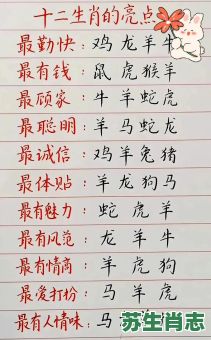 十二生肖的亮点
最勤快：鸡龙羊牛
最有钱：鼠虎猴羊
最顾家：牛羊蛇虎
最聪明：羊马蛇龙
最诚信：鸡羊兔猪
最体贴：羊龙狗马
最有魅力：蛇虎羊
最有风范：龙羊牛
最有情商：羊虎狗
最爱打扮：马羊虎
最有人情味：马
苏生肖志